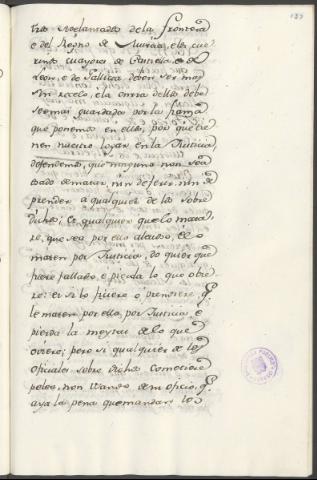 tros Adelantados de la frontera
e del Regno de Murcia, e los cue
rinos mayores de Castiela e de
Leon, e de Gallicia deben ser mas
sin recelo, e la onrra dellos debe
seer mas guardada por la fianza
que ponemos en ellos, por que tie
nen nuestro logar en la Justicia,
defendemos, que ninguno non sea
osado de matar, nin de ferir, nin de
prender a qualquier de los sobre
dichos; Et qualquier que lo mata
re, que sea por ello alevoso, e lo
maten por Justicia, do quier que
fuere fallado, e pierda lo que obie
re: et si lo firiere o prendiere q.e
le maten por ello, por Justicia, e
pierda la meytat de lo que
oviere; pero si qualquier de los
oficiales sobre dichos cometiere
pelea, non usando de su oficio, q.e
aya la pena que mandan los